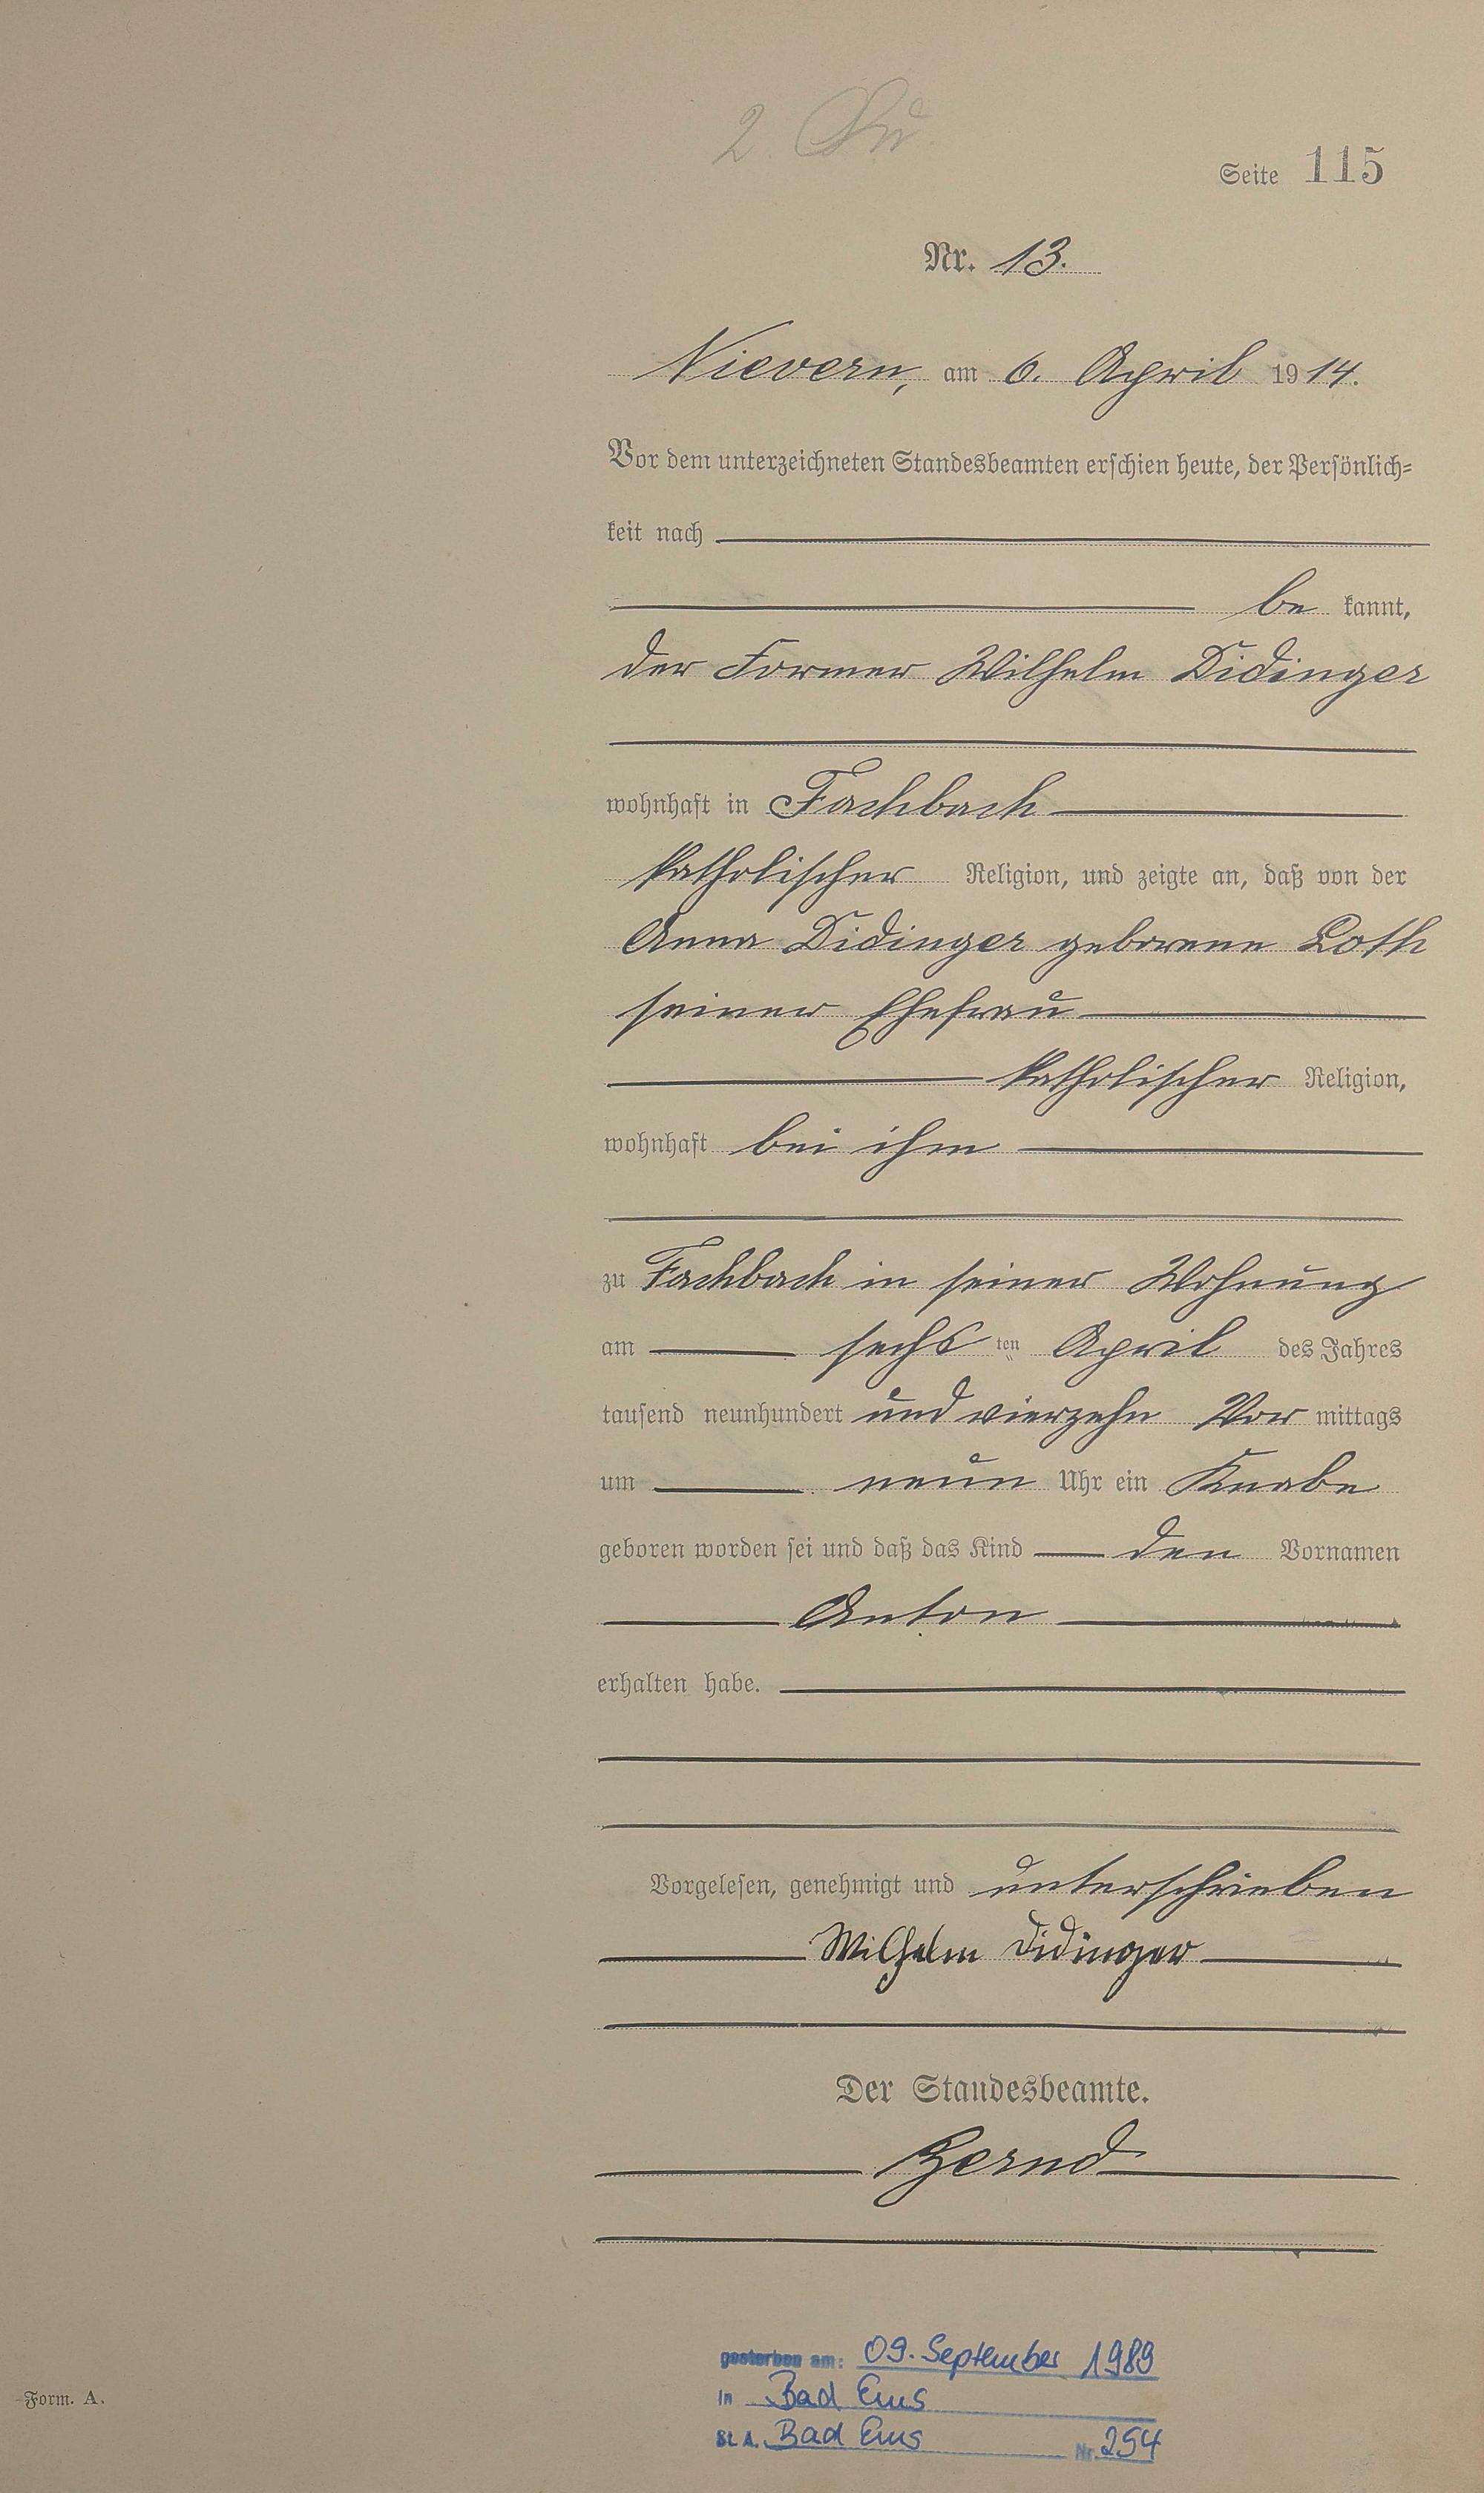 2.
Seite 115
Nr. 13.
Nievern, am 6. April 1914.
Vor dem unterzeichneten Standesbeamten erschien heute, der Persönlich=
keit nach
be kannt,
der Former Wilhelm Didinger
wohnhaft in Fachbach
katholischer Religion, und zeigte an, daß von der
Anna Didinger geborene Loth
seiner Ehefrau
katholischer Religion,
wohnhaft bei ihm
zu Fachbach in seiner Wohnung
am sechs ten April des Jahres
tausend neunhundert und vierzehn Vor mittags
um neun Uhr ein Knabe
geboren worden sei und daß das Kind den Vornamen
Anton
erhalten habe.
Vorgelesen, genehmigt und unterschrieben
Wilhelm Didinger
Der Standesbeamte.
gestorben am: 09. September 1989
in Bad Ems
St. A. Bad Ems Nr. 254
Form. A.